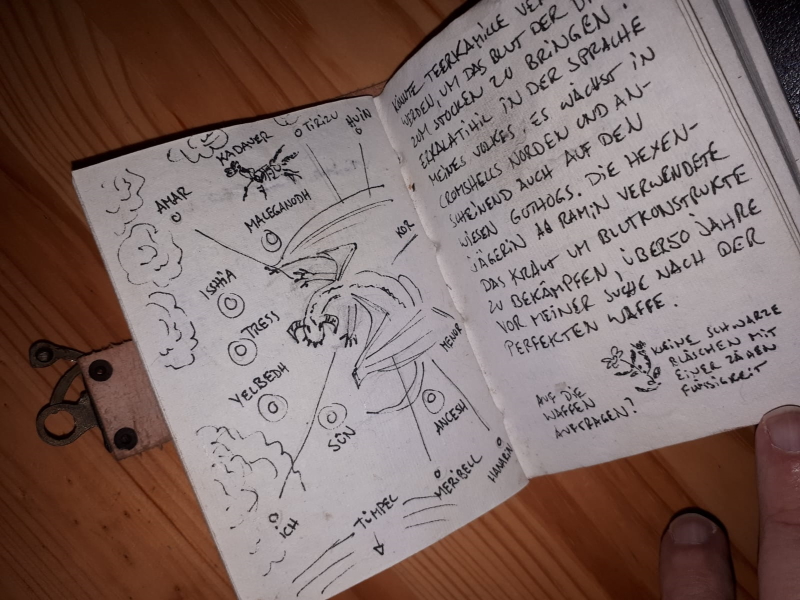 KADAVER
TIRIZU
HUIN
AMAR
MALEGANODH
KOR
ISHIA
TRESS
YELBEDH
SON
ANCESH
MERIBELL
ICH
TÜMPEL
KÖNNTE TEERKAMILLE
WERDEN, UM DAS BLUT DER
ZUM STOCKEN ZU BRINGEN.
IN DER SPRACHE
MEINES VOLKES, ES WÄCHST IN
CROMSHELLS NORDEN UND AN-
SCHEINEND AUCH AUF DEN
WIESEN GUTHOGS. DIE HEXEN-
JÄGERIN AQ RAMIN VERWENDETE
DAS KRAUT UM BLUTKONSTRUKTE
ZU BEKÄMPFEN, ÜBER 50 JAHRE
VOR MEINER SUCHE NACH DER
PERFEKTEN WAFFE.
KLEINE SCHWARZE
BLÄSCHEN MIT
EINER ZÄHEN
FLÜSSIGKEIT
AUF DIE
WAFFEN
AUFTRAGEN?